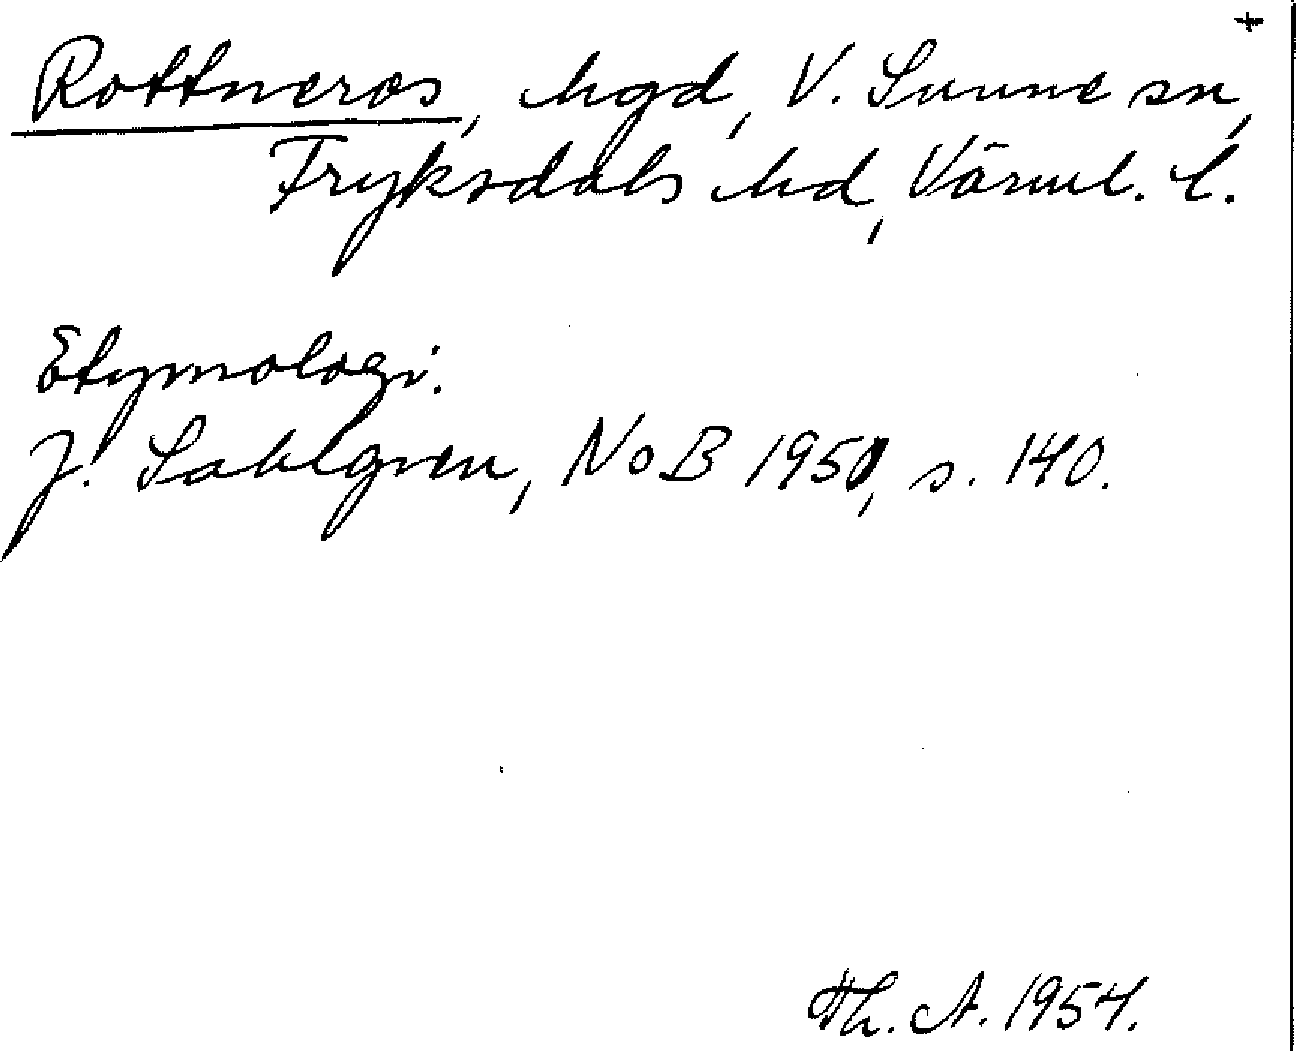 +
Rottneros, hgd, V. Sunne sn,
Fryksdals hd, Värml. l.
Etymologi.
J. Sahlgren, NoB 1950, s. 140.
Th. A. 1954.